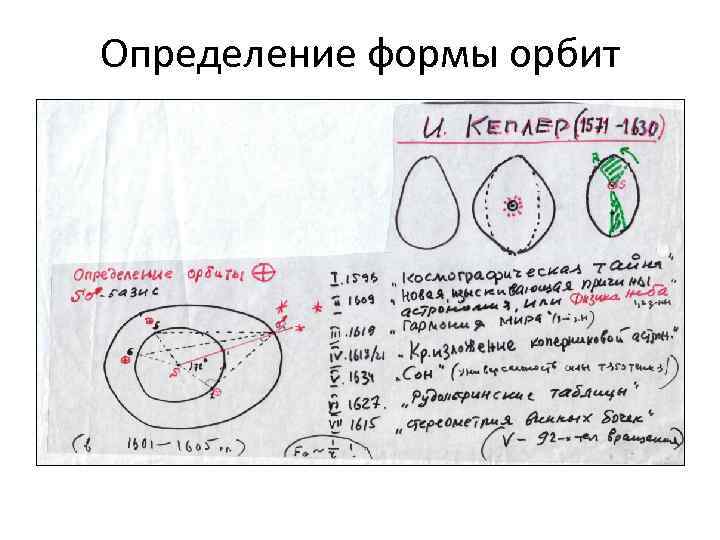 Определение формы орбит
И. КЕПЛЕР (1571-1630)
S
Определение орбиты
базис
5
6
S
I. 1596 „Космографическая тайна"
II 1609 „Новая, изыскивающая причины
астрономия, или Физика неба"
III 1619 „Гармония мира"
IV. 1618/21 „Кр. изложение коперниковой астрон."
V. 1634 „Сон"
VI 1627. „Рудольфинские таблицы"
VII 1615 „стереометрия винных бочек"
(V – 92 тел вращения)
(в 1601 – 1605 гг.